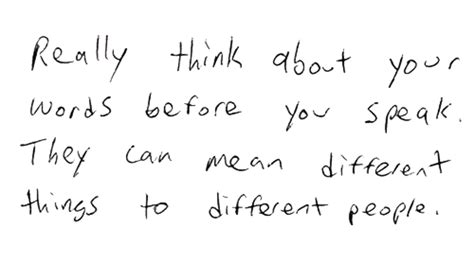 Really think about your
words before you speak.
They can mean different
things to different people.